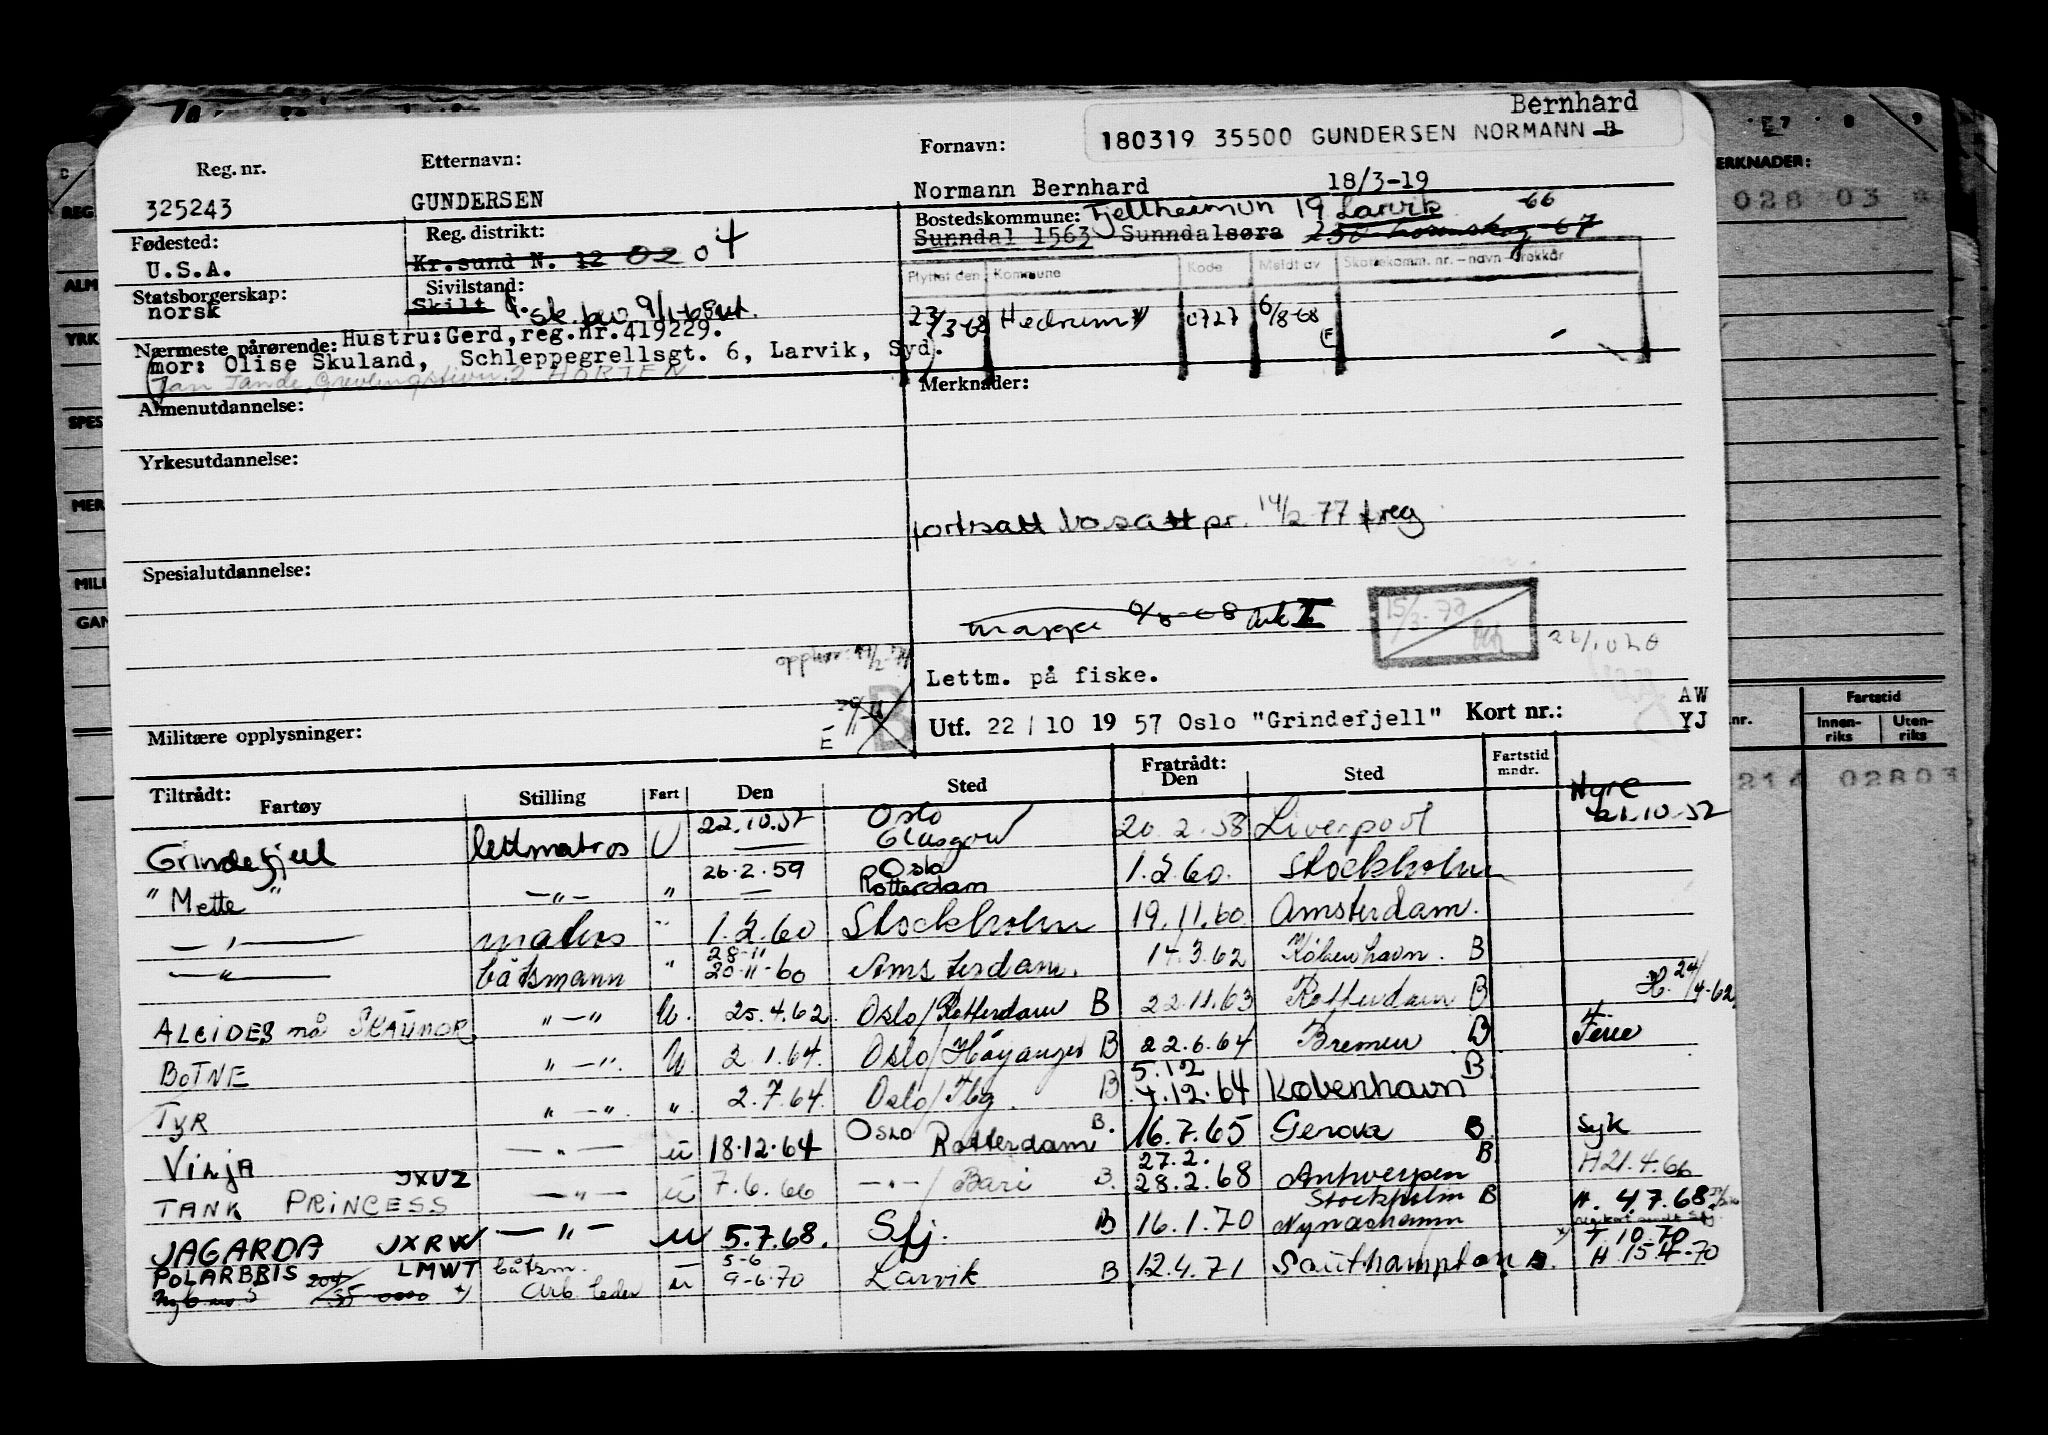 Bernhard
180319 35500 GUNDERSEN NORMANN B
Reg. nr. Etternavn: Fornavn:
325243 GUNDERSEN Normann Bernhard 18/3-19
Fødested: Reg. distrikt: Bostedskommune: Fjellheimvn 19 Larvik -66
U.S.A. Kr.sund N. 12 02 04 Sunndal 1563 Sunndalsøra -67
Statsborgerskap: Sivilstand: Flyttet den: Kommune Kode Meldt av Skattekomm. nr. – navn – Trekkår
norsk Skilt 23/3-68 Hedrum 0727 6/8-68
Nærmeste pårørende: Hustru: Gerd, reg.nr. 419229.
mor: Olise Skuland, Schleppegrellsgt. 6, Larvik, Syd.
Jan Tande, Grevlingstien 2 HORTEN
Almenutdannelse: Merknader:
Yrkesutdannelse:
fortsatt bosatt pr. 14/2 77 freg
Spesialutdannelse:
mappe 6/8-68
15/3-77
Lettm. på fiske.
Militære opplysninger: E B Utf. 22/10 1957 Oslo "Grindefjell" Kort nr.: AW YJ
Tiltrådt: Fartøy Stilling Fart Den Sted Fratrådt: Den Sted Fartstid mndr.
Hyre
Grindefjell lettmatros U 22.10.57 Oslo Glasgow 20.2.58 Liverpool 21.10.57
"Mette" —"— " 26.2.59 Oslo Rotterdam 1.2.60. Stockholm
—"— matros " 1.2.60 Stockholm 19.11.60 Amsterdam.
—"— båtsmann " 28-11 20-11-60 Amsterdam. 14.3.62 København. B
ALCIDES nå SKAUNOR "—" U. 25.4.62 Oslo/Rotterdam B 22.11.63 Rotterdam B H. 24/4-62
BOTNE "—". U 2.1.64. Oslo/Høyanger B 22.6.64 Bremen B Ferie
TYR "—". ". 2.7.64. Oslo/Tbg. B 5.12 4.12.64 København B.
VILJA —"— u 18.12.64 Oslo Rotterdam B. 16.7.65 Genova B Syk
TANK PRINCESS JXUZ —"— u 7.6.66 —"—/Bari B. 27.2. 28.2.68 Antwerpen B H 21.4.66
JAGARDA JXRW —"— u 5.7.68. Sfj. B 16.1.70 Stockholm Nynashamn B H. 4.7.68
POLARBRIS LMWT båtsm. Arb leder u 5-6 9-6.70 Larvik B 12.4.71 Southampton B. T 10.70 H. 15.4-70
ERKNADER:
028 03
REG.
ALM
YRK
SPES
MER
MILI
GAN
nr. Fartstid
Innen-riks Uten-riks
214 02803